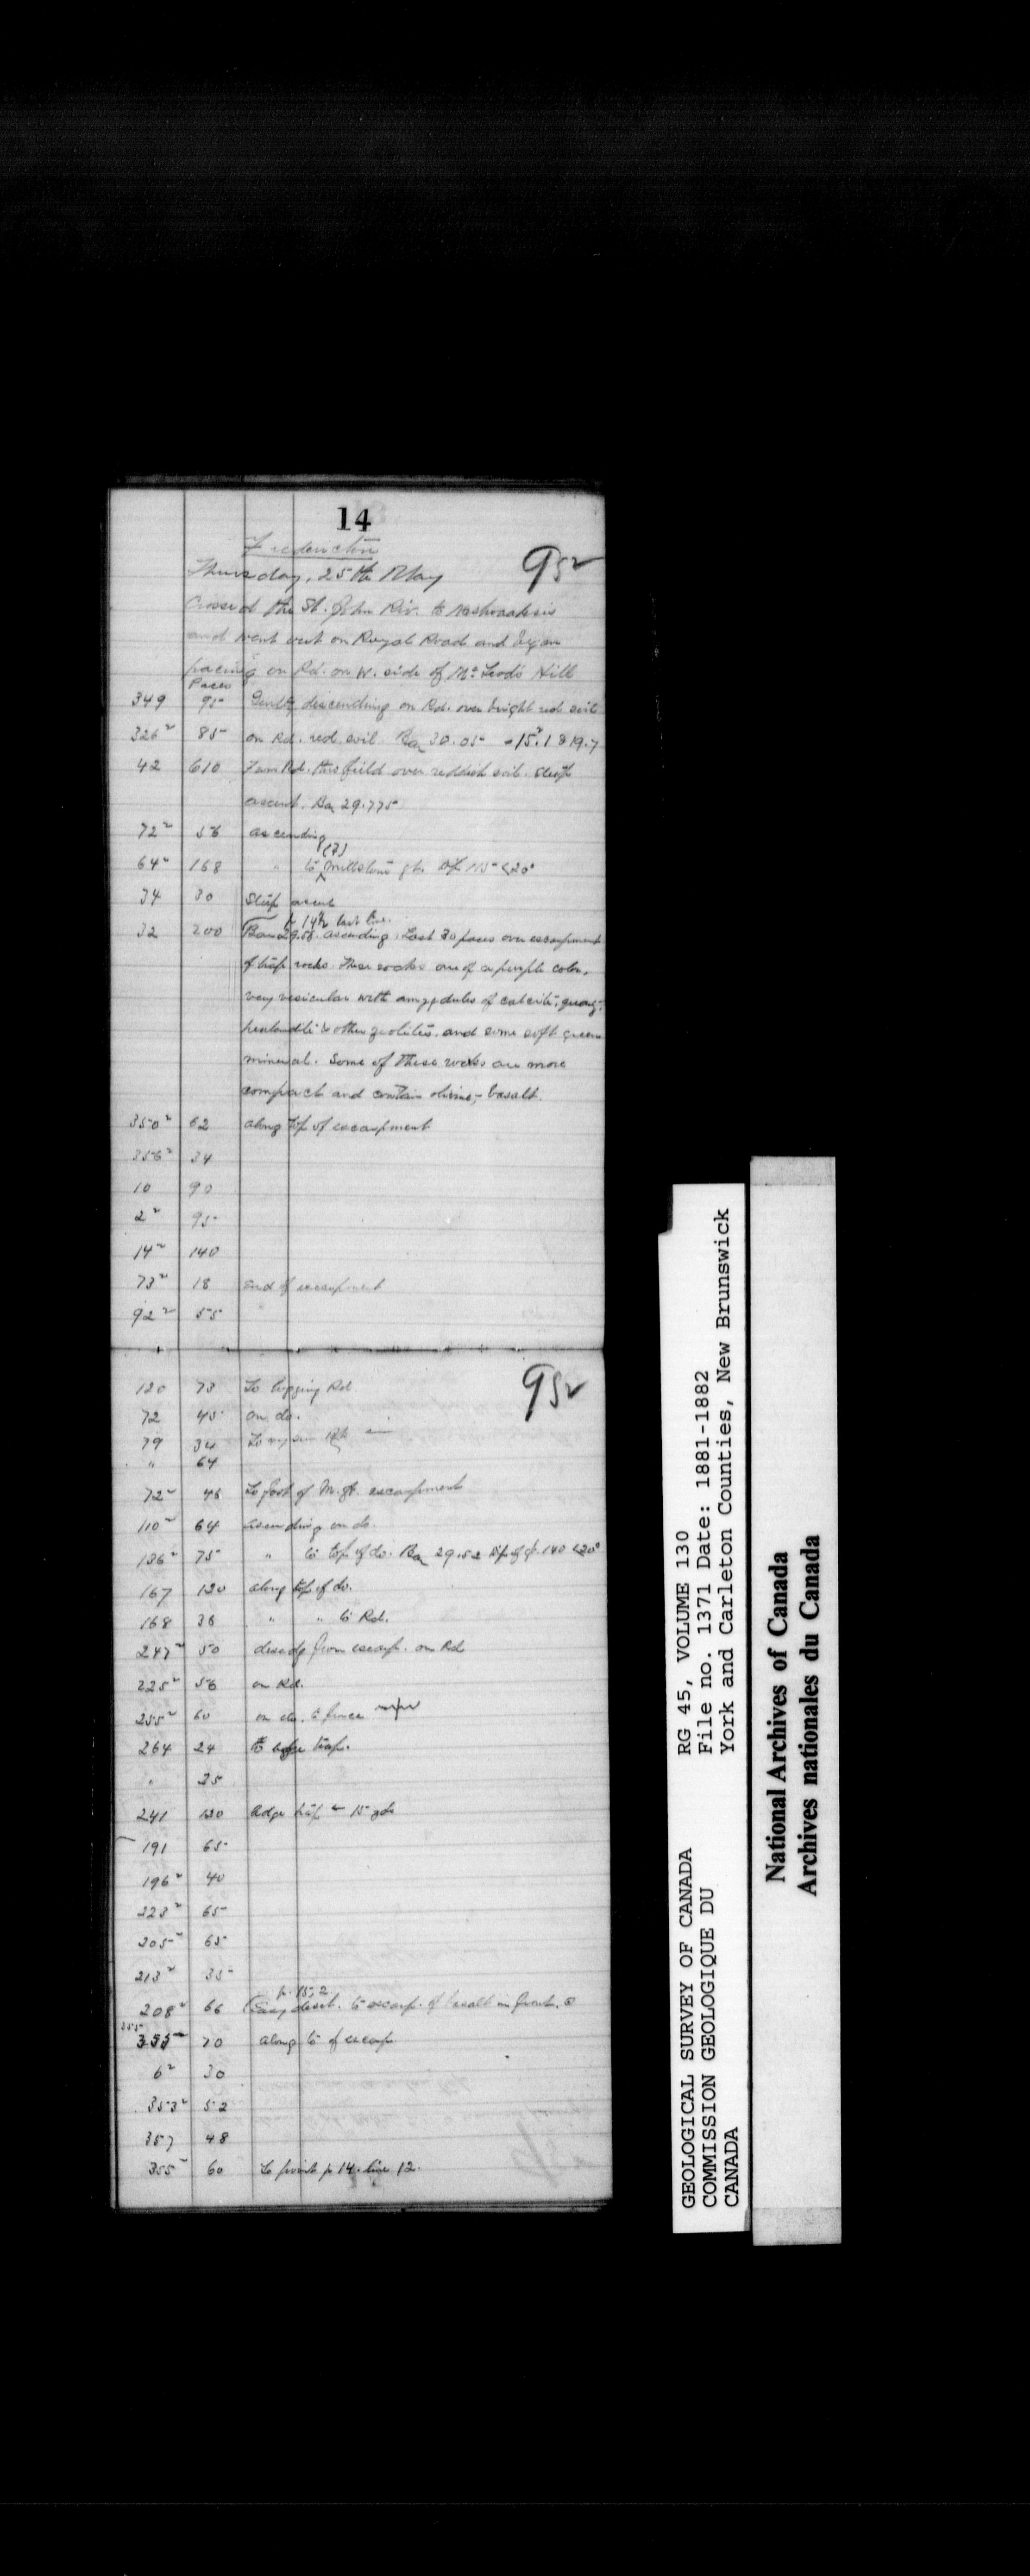 14
Fredericton
952
Thursday, 25th May
Crossed the St. John Riv. to Nashwaaksis
and went out on Royal Road and began
pacing on Rd. on W. side of McLeods Hill
Paces
349 95 Gently descending on Rd. over bright red soil
326² 85 on Rd. red soil. Ba 30.05
42 610 From Rd. thro field over reddish soil. Steep
ascent. Ba 29.775
72² 56 ascending
64² 168 " to (?) millstone gt. dip 115 <20°
34 30 Steep ascent
p 14½ last line.
32 200 Bar 29.58. ascending. Last 30 paces over escarpment
of trap rocks. These rocks are of a purple color,
very vesicular with amygdules of calcite, quartz,
heulandite & other zeolites, and some soft green
mineral. Some of these rocks are more
compact and contain olivine,- basalt.
350² 62 along top of escarpment
356² 34
10 90
2² 95
14² 140
73² 18 end of escarpment
92² 55
952
120 73 to logging Rd.
72 45 on do.
79 34
" 64
72² 46 to foot of M. gt. escarpment
110² 64 ascending on do.
136² 75 " to top of do. Ba 29.52 dip of 140 <20°
167 120 along top of do.
168 36 " " to Rd.
247² 50 descdg from escarp. on Rd
225² 56 on Rd.
255² 60 on do. to fence
264 24 to edge trap.
" 25
241 120 edge trap 15 yds
191 65
196² 40
223² 65
205² 65
213² 35
p. 15, 2
208² 66 Easy descet. to escarp. of basalt in front.
355
353 70 along to of escarp.
6² 30
353² 52
357 48
355² 60 to point p 14. line 12.
GEOLOGICAL SURVEY OF CANADA
COMMISSION GEOLOGIQUE DU
CANADA
RG 45, VOLUME 130
File no. 1371 Date: 1881-1882
York and Carleton Counties, New Brunswick
National Archives of Canada
Archives nationales du Canada